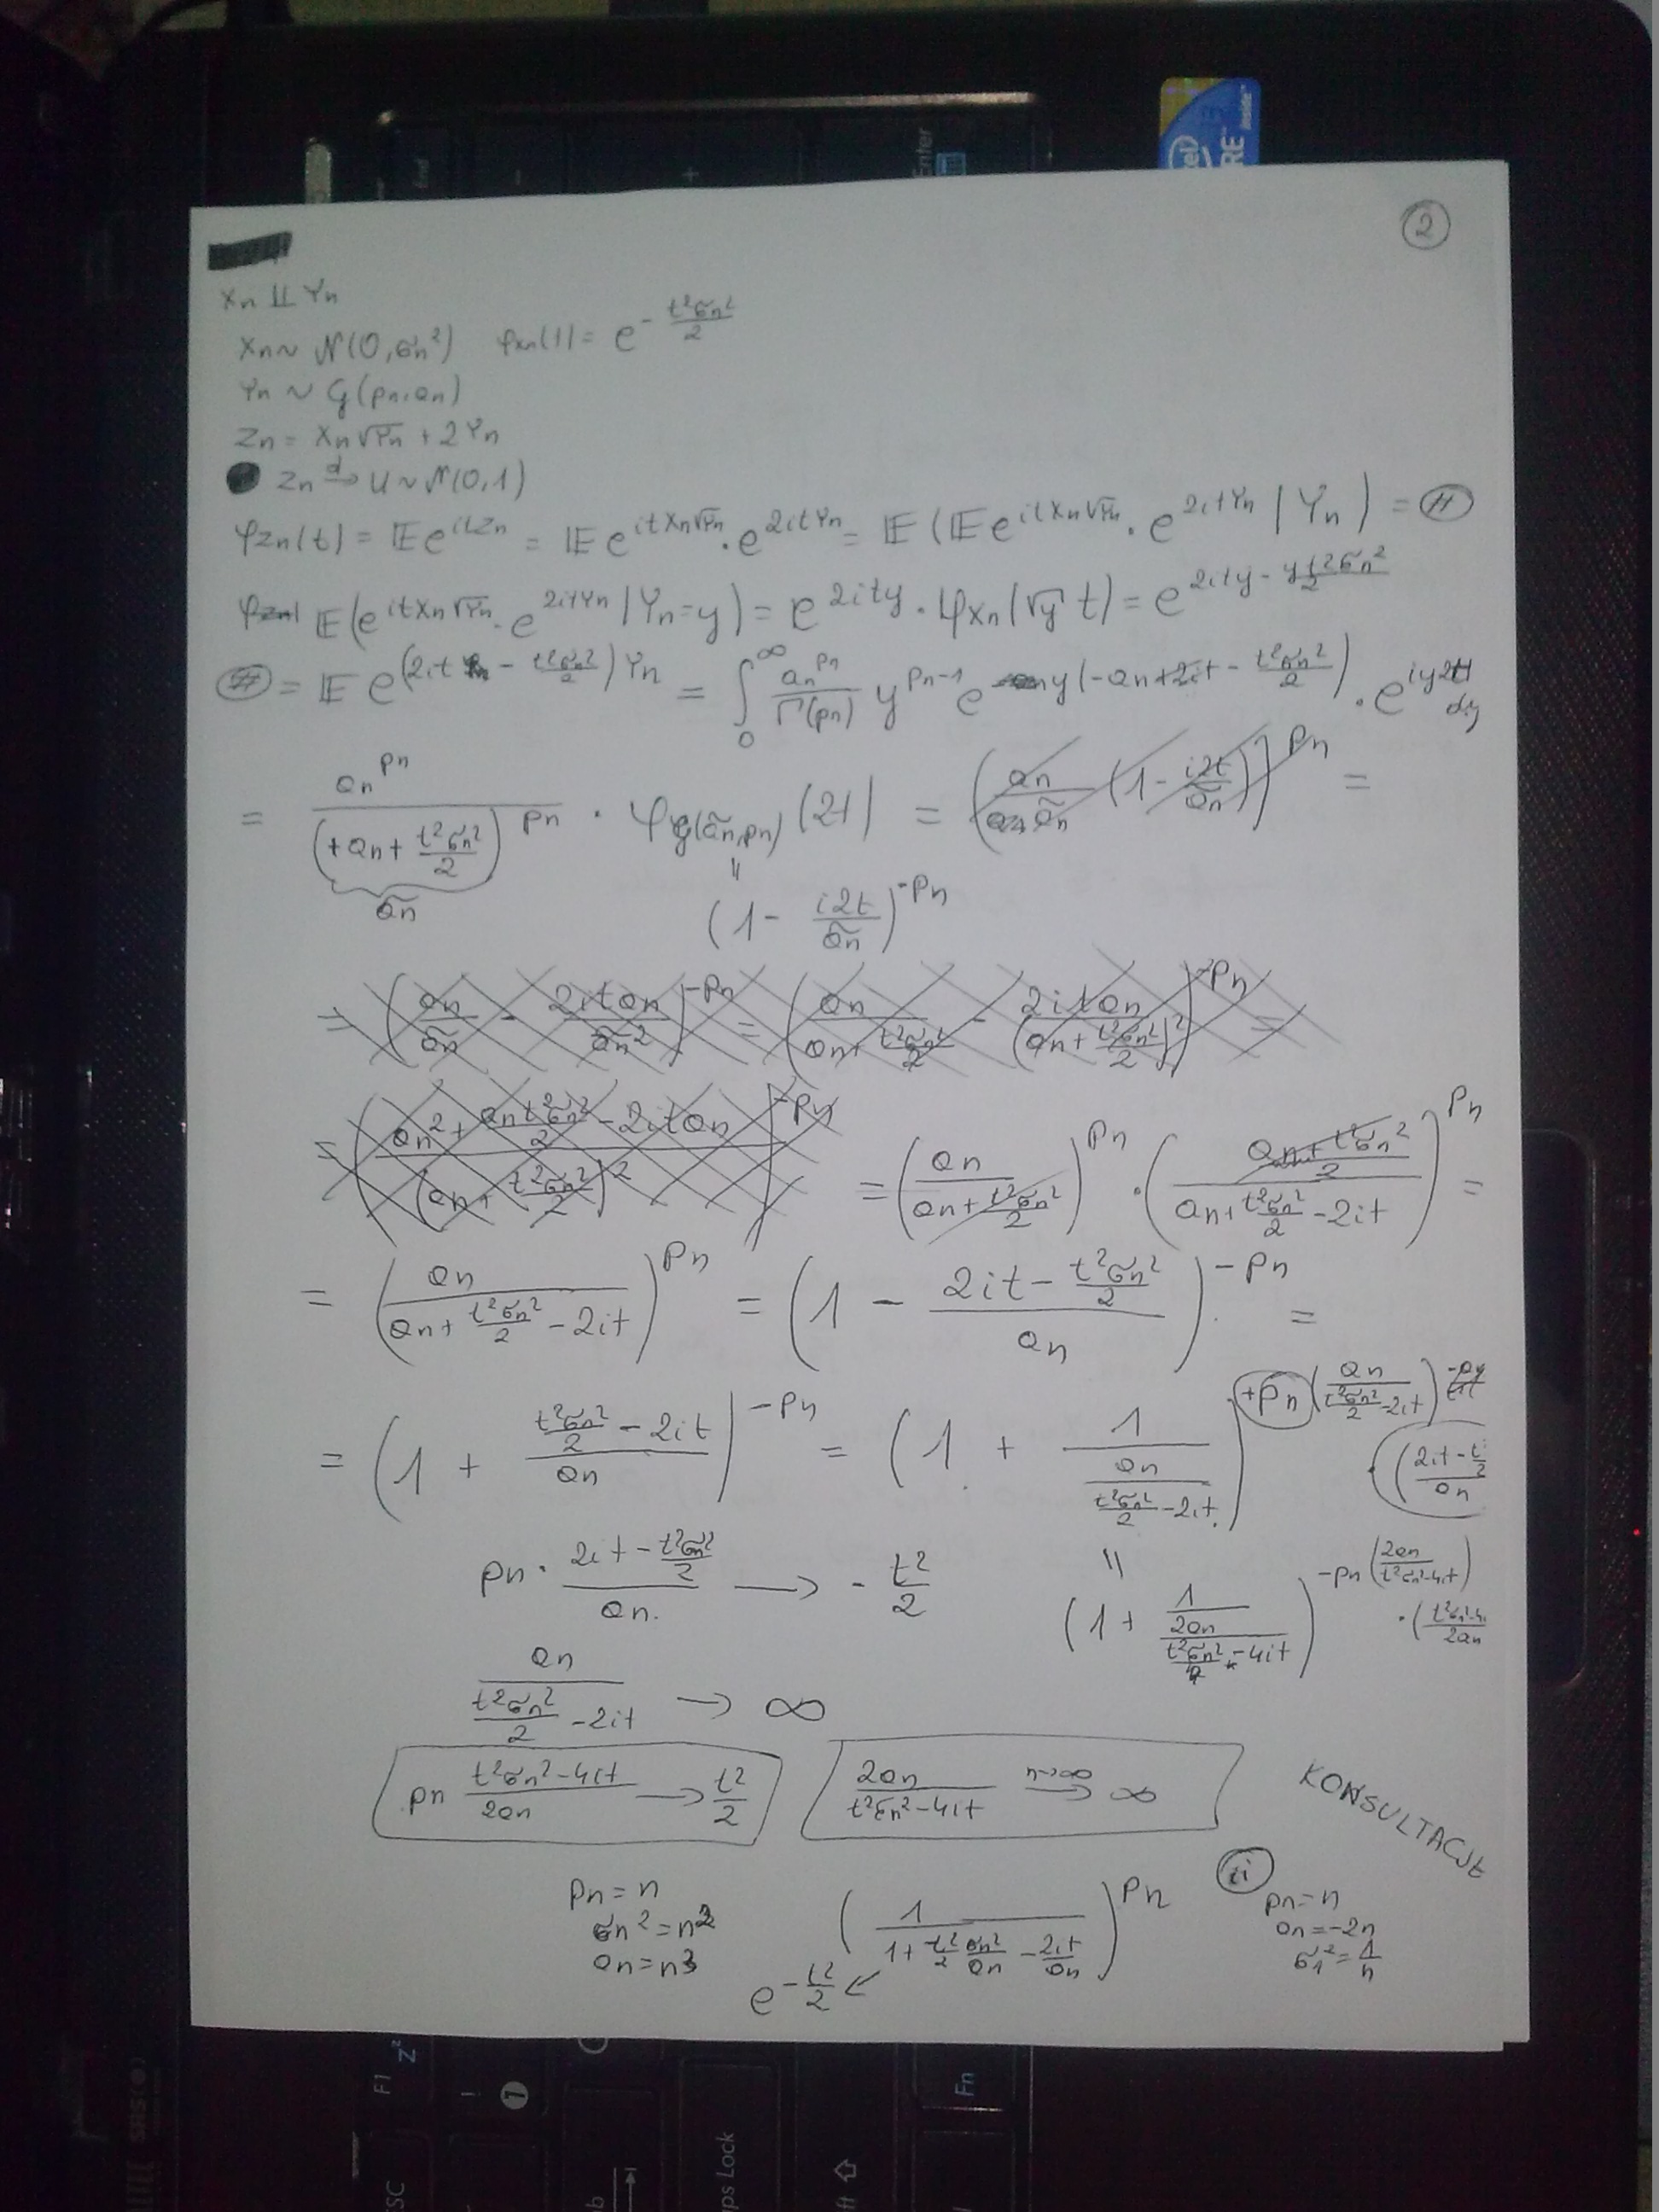 ②
Xn ⫫ Yn
Xn ~ N(0, σn²)   φXn(t) = e^{-t²σn²/2}
Yn ~ G(pn, an)
Zn = Xn√Yn + 2Yn
Zn →d U ~ N(0,1)
φZn(t) = 𝔼e^{itZn} = 𝔼e^{itXn√Yn}·e^{2itYn} = 𝔼(𝔼e^{itXn√Yn}·e^{2itYn} | Yn) = (#)
𝔼(e^{itXn√Yn}·e^{2itYn} | Yn=y) = e^{2ity}·φXn(√y t) = e^{2ity - y t²σn²/2}
(#) = 𝔼e^{(2it - t²σn²/2)Yn} = ∫₀^∞ an^{pn}/Γ(pn) y^{pn-1} e^{y(-an+2it - t²σn²/2)}·e^{iy2t} dy
= an^{pn}/(+an + t²σn²/2)^{pn} · φ_{G(ãn,pn)}(2t) = (an/ãn (1 - i2t/ãn))^{pn} =
ãn
(1 - i2t/ãn)^{-pn}
= (an/ãn - 2itan/ãn²)^{-pn} = (an/(an + t²σn²/2) - 2itan/(an + t²σn²/2)²)^{-pn} =
= ((an² + ant²σn²/2 - 2itan)/(an + t²σn²/2)²)^{-pn} = (an/(an + t²σn²/2))^{pn} · ((an + t²σn²/2)/(an + t²σn²/2 - 2it))^{pn} =
= (an/(an + t²σn²/2 - 2it))^{pn} = (1 - (2it - t²σn²/2)/an)^{-pn} =
= (1 + (t²σn²/2 - 2it)/an)^{-pn} = (1 + 1/(an/(t²σn²/2 - 2it)))^{+pn (an/(t²σn²/2 - 2it))}
pn · (2it - t²σn²/2)/an → - t²/2
(1 + 1/(2an/(t²σn² - 4it)))^{-pn (2an/(t²σn² - 4it))}
an/(t²σn²/2 - 2it) → ∞
pn (t²σn² - 4it)/2an → t²/2
2an/(t²σn² - 4it) →^{n→∞} ∞
KONSULTACJE
pn = n
σn² = n²
an = n³
(1/(1 + t²/2 σn²/an - 2it/an))^{pn}
e^{-t²/2} ↙
(ii)
pn = n
an = -2n
σn² = 1/n
Enter
End
intel
CORE
inside
F1
Z
ESC
Caps Lock
Fn